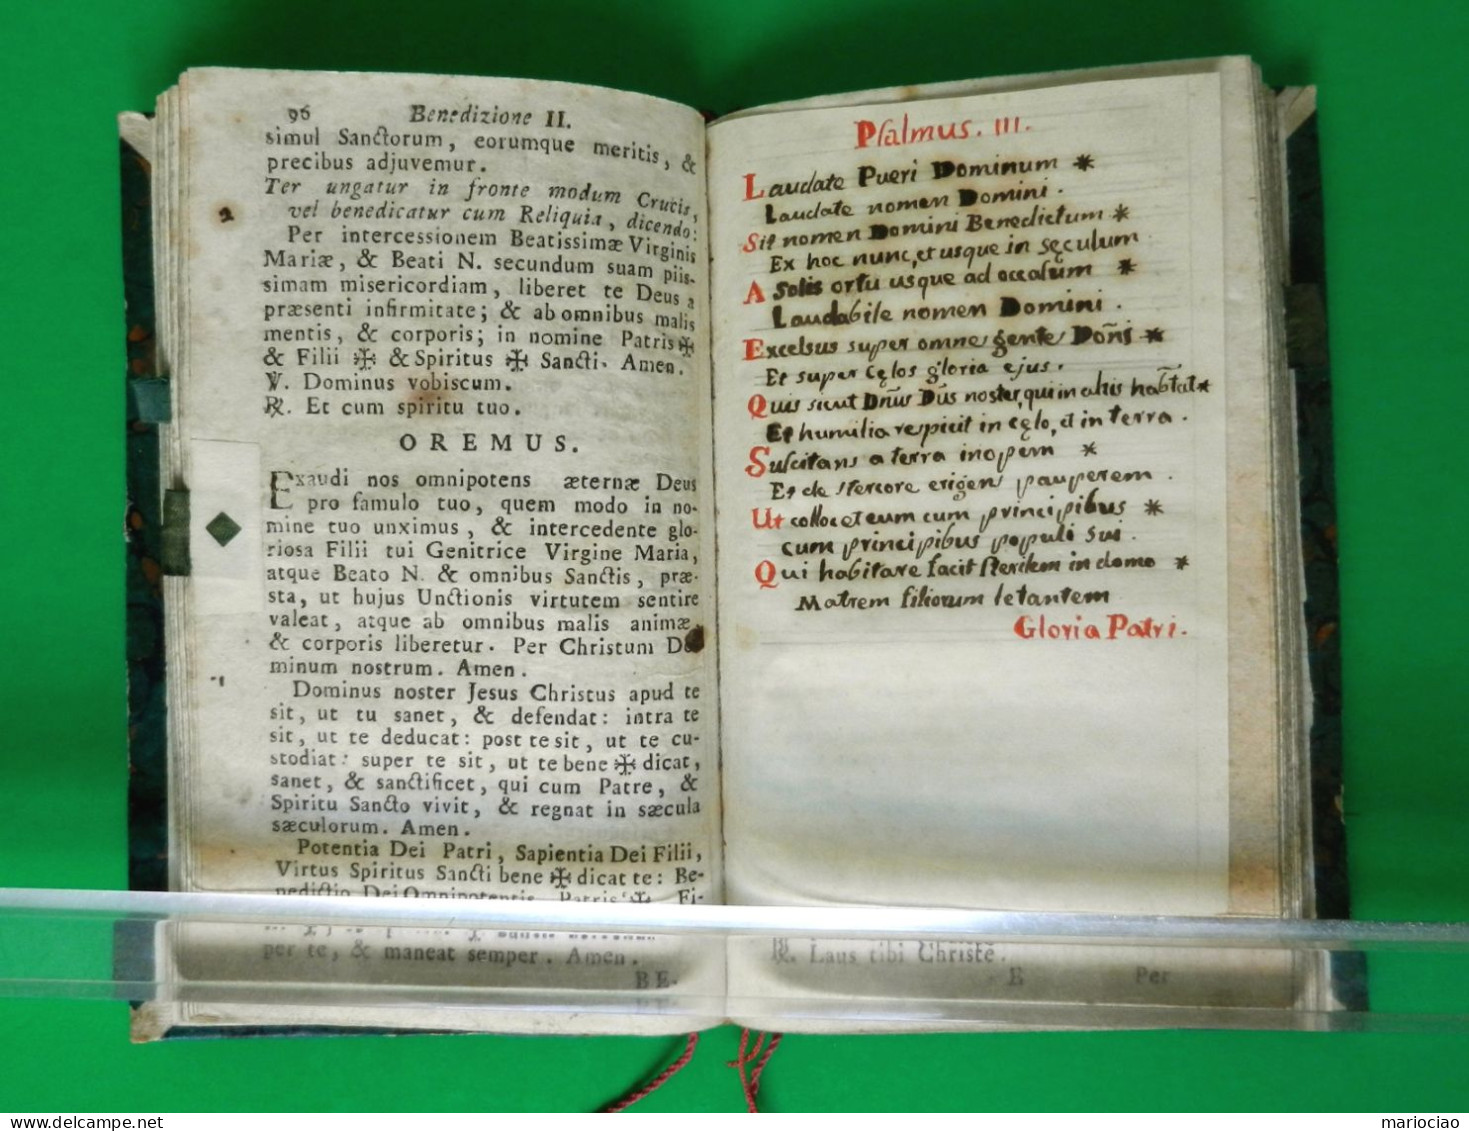 96 Benedizione II.
simul Sanctorum, eorumque meritis, &
precibus adjuvemur.
Ter ungatur in fronte modum Crucis,
vel benedicatur cum Reliquia, dicendo:
Per intercessionem Beatissimæ Virginis
Mariæ, & Beati N. secundum suam piis-
simam misericordiam, liberet te Deus a
præsenti infirmitate; & ab omnibus malis
mentis, & corporis; in nomine Patris ✠
& Filii ✠ & Spiritus ✠ Sancti. Amen.
℣. Dominus vobiscum.
℟. Et cum spiritu tuo.
OREMUS.
Exaudi nos omnipotens æternæ Deus
pro famulo tuo, quem modo in no-
mine tuo unximus, & intercedente glo-
riosa Filii tui Genitrice Virgine Maria,
atque Beato N. & omnibus Sanctis, præ-
sta, ut hujus Unctionis virtutem sentire
valeat, atque ab omnibus malis animæ,
& corporis liberetur. Per Christum Do
minum nostrum. Amen.
Dominus noster Jesus Christus apud te
sit, ut tu sanet, & defendat: intra te
sit, ut te deducat: post te sit, ut te cu-
stodiat: super te sit, ut te bene ✠ dicat,
sanet, & sanctificet, qui cum Patre, &
Spiritu Sancto vivit, & regnat in sæcula
sæculorum. Amen.
Potentia Dei Patri, Sapientia Dei Filii,
Virtus Spiritus Sancti bene ✠ dicat te: Be-
nedictio Dei Omnipotentis Patris ✠ Fi-
per te, & maneat semper. Amen.
BE-
Psalmus. III.
Laudate Pueri Dominum *
Laudate nomen Domini.
Sit nomen Domini Benedictum *
Ex hoc nunc, et usque in sęculum
A Solis ortu usque ad occasum *
Laudabile nomen Domini.
Excelsus super omne gente Dom̃i *
Et super cęlos gloria ejus.
Quis sicut Dñus Dũs noster, qui in altis habt̃at *
Et humilia respicit in cęlo, et in terra.
Suscitans a terra inopem *
Et de stercore erigens pauperem.
Ut collocet eum cum principibus *
cum principibus populi sui.
Qui habitare facit sterilem in domo *
Matrem filiorum letantem
Gloria Patri.
℟. Laus tibi Christe.
E Per
mariociao